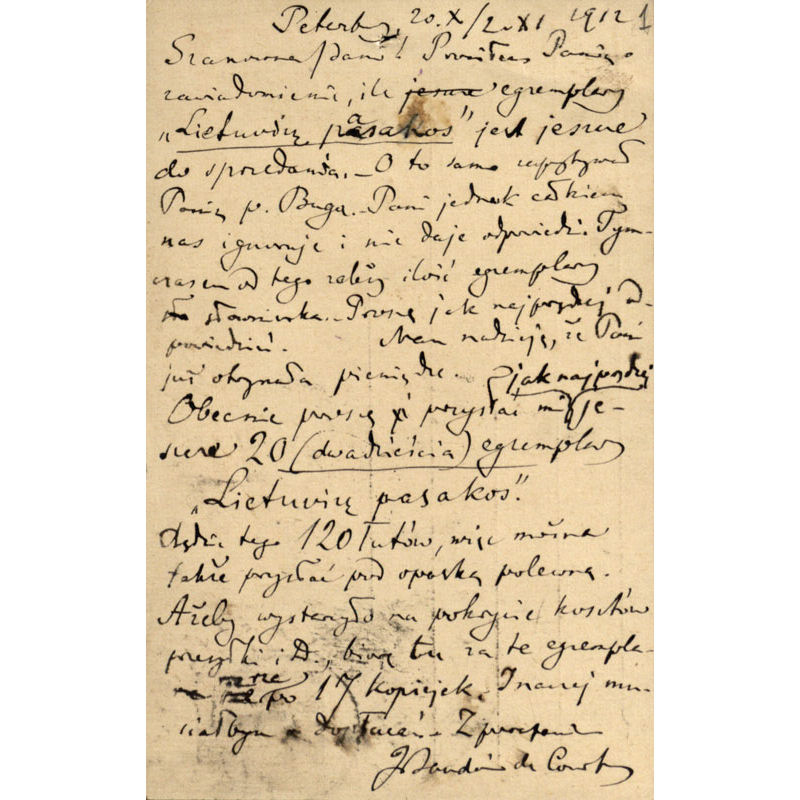 Peterb., 20.X/2.XI 1912 1
Szanowna Pani! Prosiłem Panią o
zawiadomienie, ile jeszcze egzemplarzy
„Lietuvių pasakos” jest jeszcze
do sprzedania. – O to samo zapytywał
Panią p. Buga. – Pani jednak całkiem
nas ignoruje i nie daje odpowiedzi. Tym-
czasem od tego zależy ilość egzemplarzy
słowniczka. – Proszę jak najprędzej od-
powiedzieć. Mam nadzieję, że Pani
już otrzymała pieniądze.
jak najprędzej
Obecnie proszę przysłać mi je-
szcze 20 (dwadzieścia) egzemplarzy
„Lietuvių pasakos”.
Będzie tego 120 łutów, więc można
także przysłać pod opaską polecone.
Ażeby wystarczyło na pokrycie kosztów
przesyłki itd., biorę tu za te egzempla-
rze po 17 kopiejek. Inaczej mu-
siałbym dopłacać. Z poważaniem
J Baudouin de Courtenay